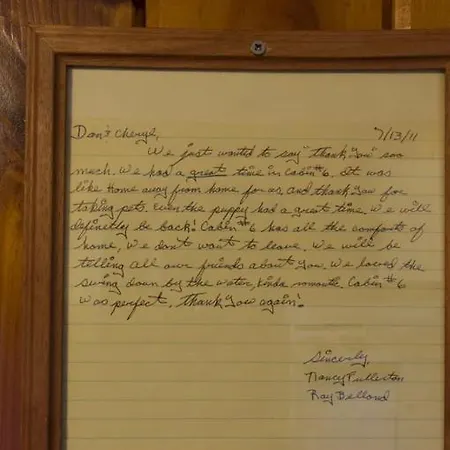 Dan & Cheryl, 7/13/11
We just wanted to say "thank you" soo
much. We had a great time in Cabin #6. It was
like home away from home for us, and thank you for
taking pets. Even the puppy had a great time. We will
definitly be back! Cabin #6 has all the comforts of
home, we don't want to leave. We will be
telling all our friends about you. We loved the
swing down by the water, kinda Cabin #6
was perfect. Thank you again!
Sincerly,
Nancy Fullerton
Ray Bellond